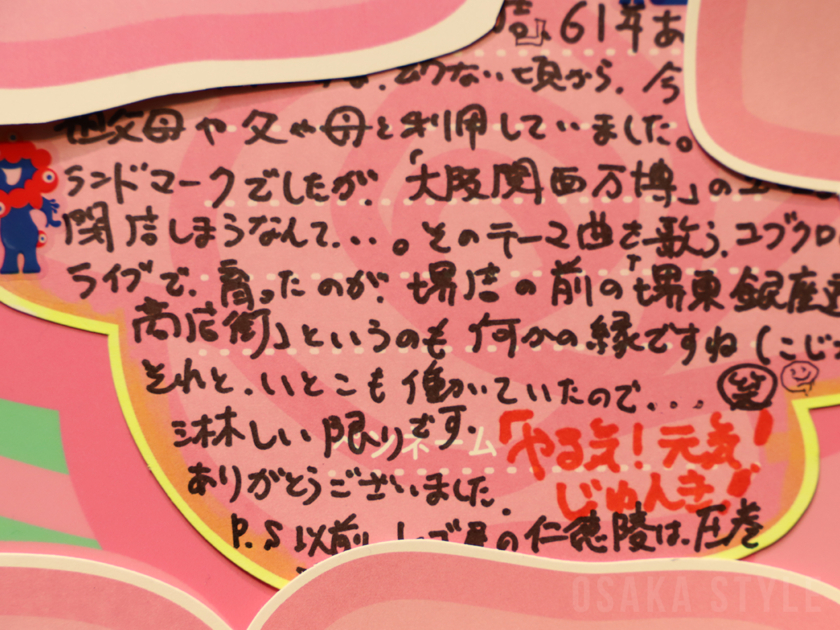 店.61年あ
ない頃から.今
祖父母や父や母と利用していました。
ランドマークでしたが.「大阪関西万博」の
閉店しまうなんて...。そのテーマ曲を歌う.コブクロ
ライブで.育ったのが.堺店の前の「堺東銀座通
商店街」というのも何かの縁ですね(こじ
それと.いとこも働いていたので...笑
淋しい限りです.
ペンネーム「やる気!元気!
じゅんき!」
ありがとうございました.
P.S以前 の仁徳陵は.圧巻
OSAKA STYLE